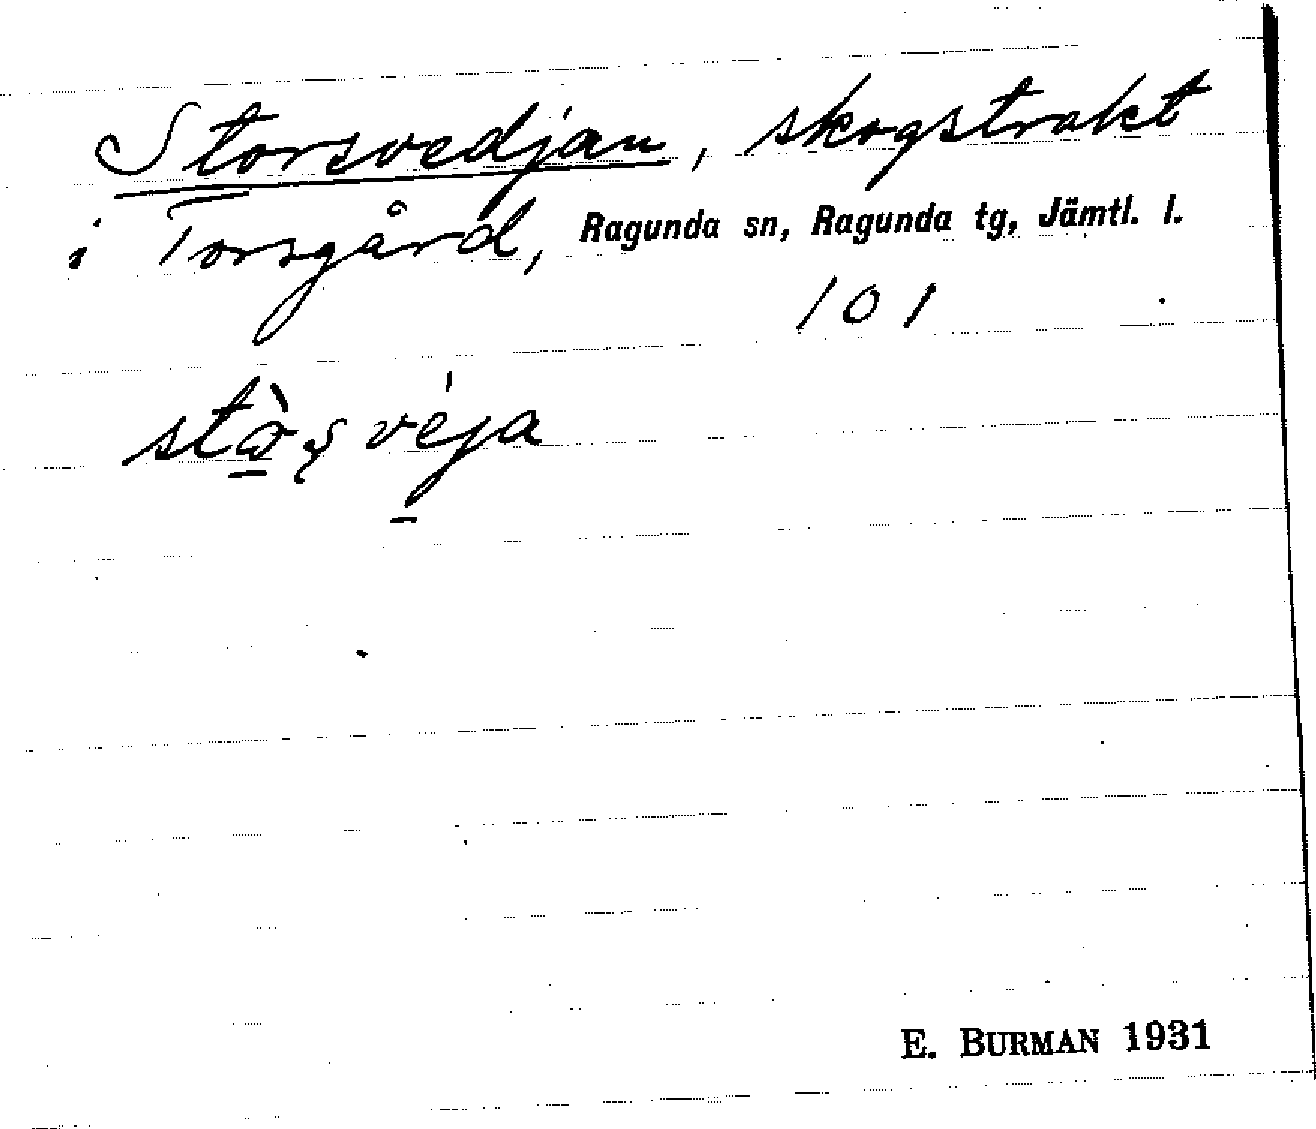 Storsvedjan, skogstrakt
i Torsgård, Ragunda sn, Ragunda tg, Jämtl. l.
101
E. BURMAN 1931